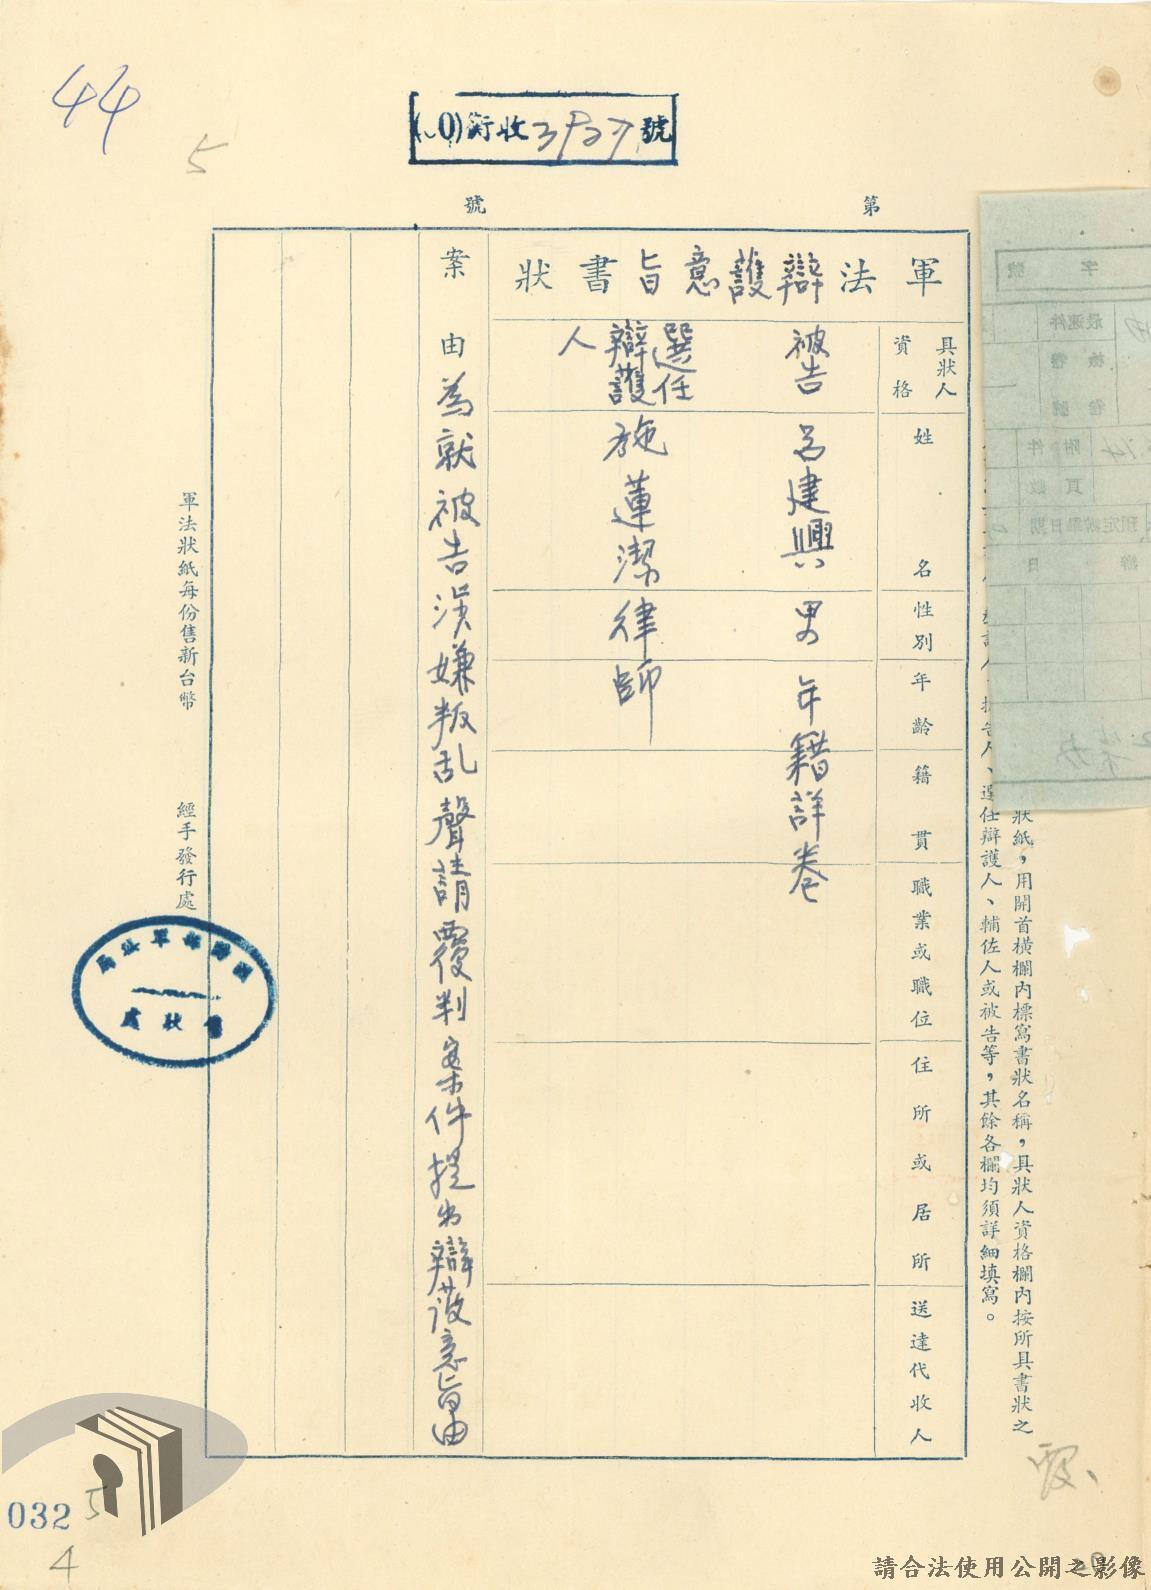 44
5
衛收 號
第 號
狀紙，用開首橫欄內標寫書狀名稱，具狀人資格欄內按所具書狀之
告人、選任辯護人、輔佐人或被告等，其餘各欄均須詳細填寫。
軍法辯護意旨書狀
具狀人資格
姓名
性別
年齡
籍貫
職業或職位
住所或居所
送達代收人
被告 呂建興 男 年籍詳卷
選任辯護人 施蓮潔律師
案由 為就被告涉嫌叛乱聲請覆判案件提出辯護意旨由
軍法狀紙每份售新台幣
經手發行處
國防部軍法局
售狀處
字 號
最速件
檢
號
附件
頁數
預定歸檔日期
032
5
4
請合法使用公開之影像